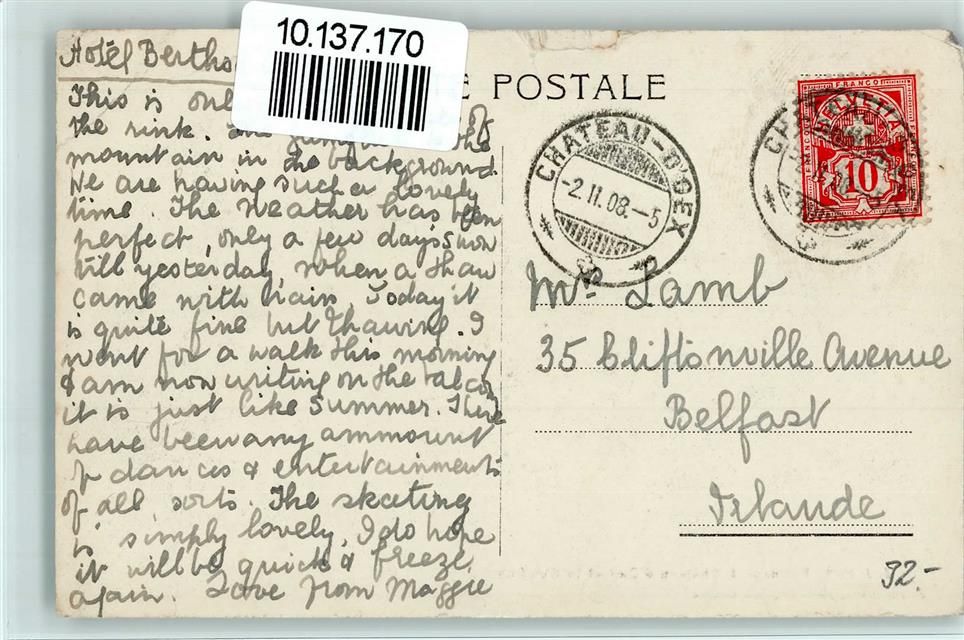 10.137.170
POSTALE
Hotel Bertho
This is onl
the rink. The of the
mountain in the background.
We are having such a lovely
time. The weather has been
perfect, only a few days snow
till yesterday, when a thaw
came with rain. Today it
is quite fine but thawing. I
went for a walk this morning
& am now writing on the balcony
it is just like summer. There
have been any ammount
of dances & entertainments
of all sorts. The skating
is simply lovely, I do hope
it will be quick & freeze
again. Love from Maggie
CHATEAU-D'OEX
-2.II.08.-5
FRANCO
HELVETIA
10
Lamb
35 Cliftonville Avenue
Belfast
Irlande
92-